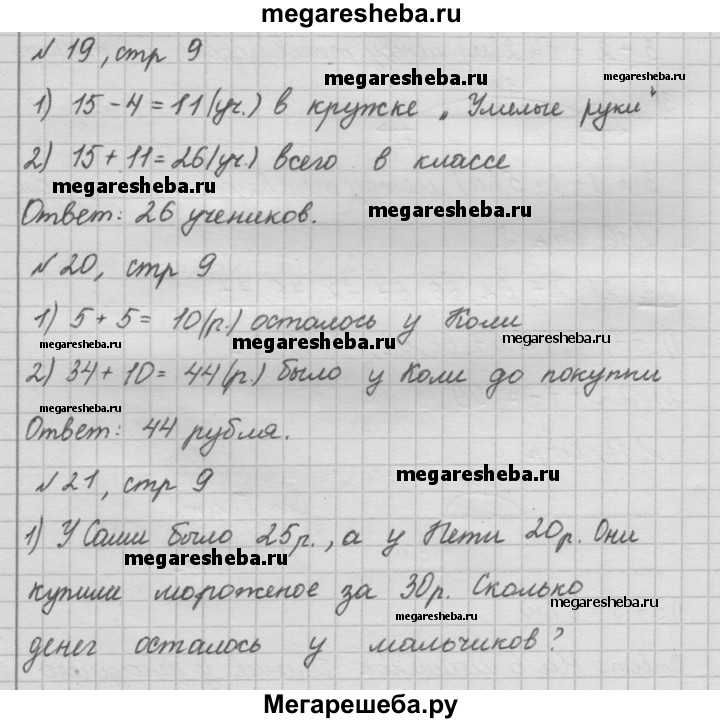 megaresheba.ru
№ 19, стр 9
megaresheba.ru megaresheba.ru
1) 15 - 4 = 11 (уч.) в кружке „Умелые руки“
2) 15 + 11 = 26 (уч.) всего в классе
megaresheba.ru
Ответ: 26 учеников. megaresheba.ru
№ 20, стр 9
1) 5 + 5 = 10 (р.) осталось у Коли
megaresheba.ru megaresheba.ru megaresheba.ru
2) 34 + 10 = 44 (р.) было у Коли до покупки
megaresheba.ru
Ответ: 44 рубля.
№ 21, стр 9 megaresheba.ru
1) У Саши было 25 р., а у Пети 20 р. Они
megaresheba.ru
купили мороженое за 30 р. Сколько
megaresheba.ru megaresheba.ru
денег осталось у мальчиков?
Мегарешеба.ру